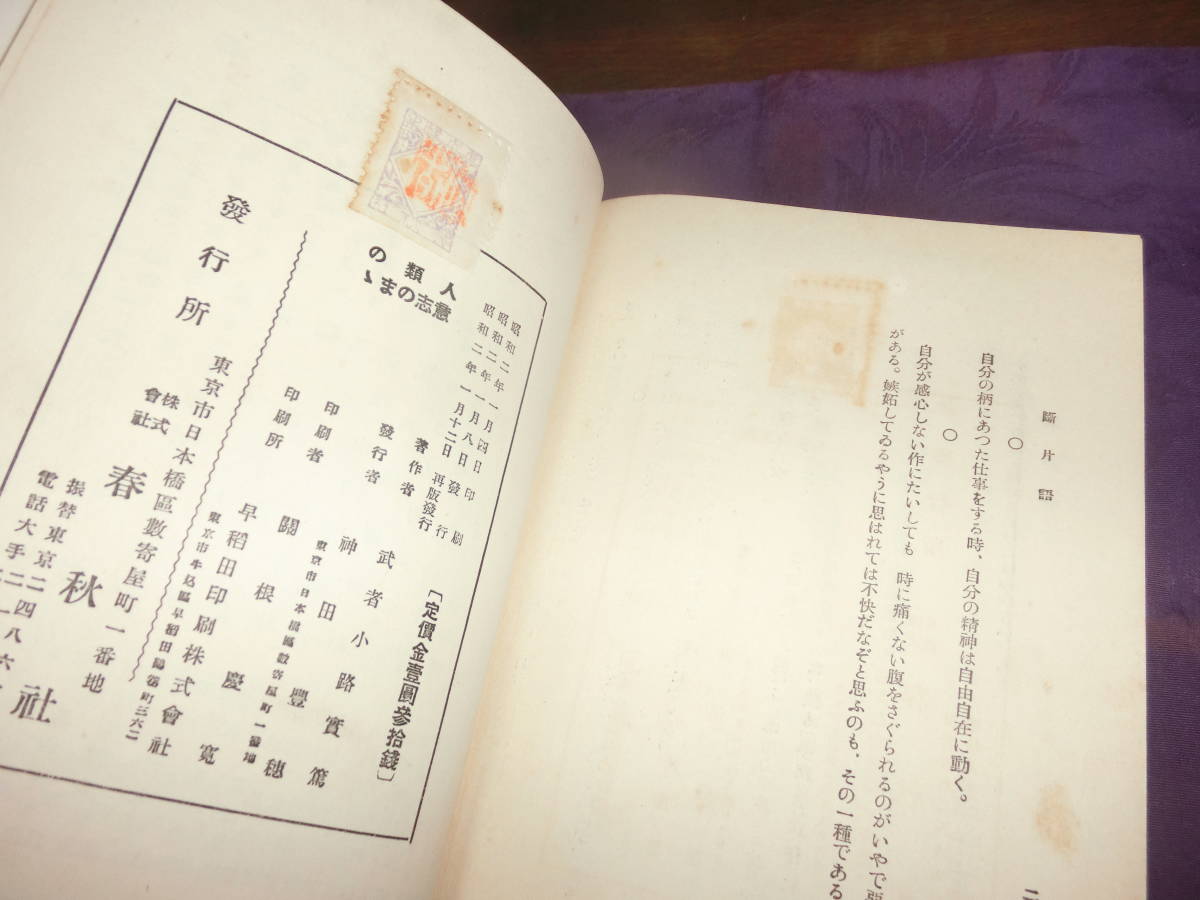 斷片語
自分の柄にあつた仕事をする時、自分の精神は自由自在に動く。
○
自分が感心しない作にたいしても 時に痛くない腹をさぐられるのがいやで
○
がある。嫉妬してゐるやうに思はれては不快だなぞと思ふのも、その一種である
人類の
意志のまゝ
昭和二年一月四日印刷
昭和二年一月八日發行
昭和二年一月十二日再版發行
〔定價金壹圓參拾錢〕
著作者 武者小路實篤
發行者 神田豐穗
東京市日本橋區數寄屋町一番地
印刷者 關根慶寬
東京市牛込區早稻田鶴卷町三六二
印刷所 早稻田印刷株式會社
發行所
東京市日本橋區數寄屋町一番地
株式會社 春秋社
振替東京二四八六
電話大手二一